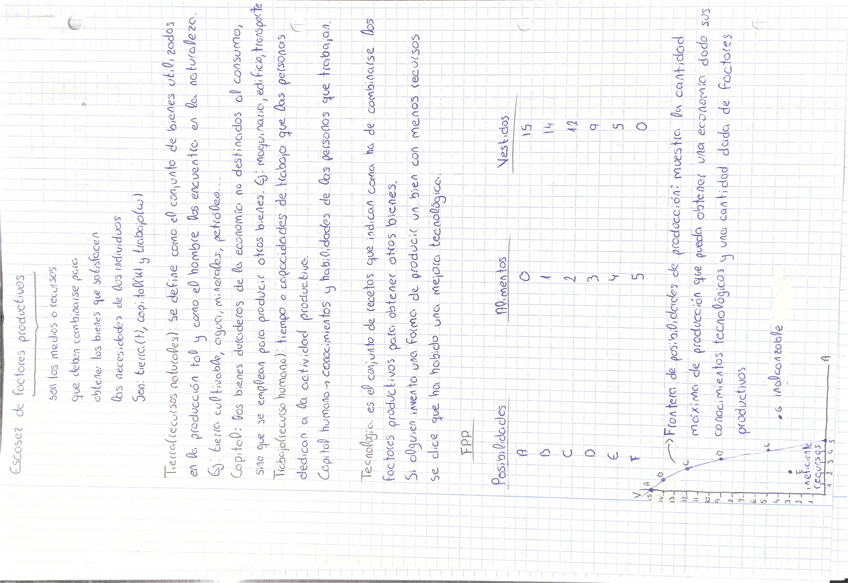 Escosez de factores productivos
son los medios o recursos
que deben combinarse para
obtener los bienes que satisfacen
las necesidades de los individuos
Son: tierra(t), capital(k) y trabajo(w)
Tierra(recursos naturales): se define como el conjunto de bienes utilizados
en la producción tal y como el hombre los encuentra en la naturaleza.
Ej: tierra cultivable, agua, minerales, petróleo...
Capital: los bienes duraderos de la economía no destinados al consumo,
sino que se emplean para producir otros bienes. Ej: maquinaria, edificio, transporte
Trabajo(recurso humano): tiempo o capacidades de trabajo que las personas
dedican a la actividad productiva.
Capital humano → conocimientos y habilidades de las personas que trabajan.
Tecnología: es el conjunto de recetas que indican como ha de combinarse los
factores productivos para obtener otros bienes.
Si alguien inventa una forma de producir un bien con menos recursos
se dice que ha habido una mejora tecnológica.
FPP
Posibilidades Alimentos Vestidos
A 0 15
B 1 14
C 2 12
D 3 9
E 4 5
F 5 0
→ Frontera de posibilidades de producción: muestra la cantidad
máxima de producción que pueda obtener una economía dado sus
conocimientos tecnológicos y una cantidad dada de factores
productivos
V
15
14
13
12
11
10
9
8
7
6
5
4
3
2
1
1 2 3 4 5
A
A
C
D
E
F
G inalcanzable
ineficiente
recursos